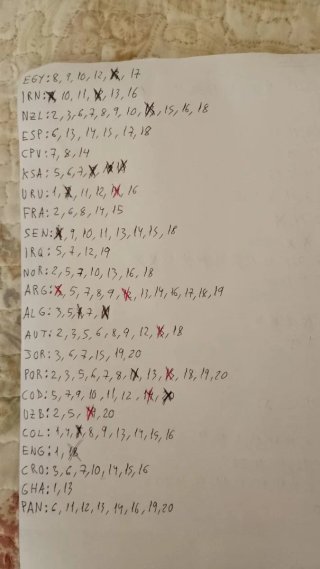 EGY: 8, 9, 10, 12, 17
IRN: 10, 11, 13, 16
NZL: 2, 3, 6, 7, 8, 9, 10, 15, 16, 18
ESP: 6, 13, 14, 15, 17, 18
CPV: 7, 8, 14
KSA: 5, 6, 7
URU: 1, 11, 12, 16
FRA: 2, 6, 8, 14, 15
SEN: 9, 10, 11, 13, 14, 15, 18
IRQ: 5, 7, 12, 19
NOR: 2, 5, 7, 10, 13, 16, 18
ARG: 5, 7, 8, 9, 13, 14, 16, 17, 18, 19
ALG: 3, 5, 7
AUT: 2, 3, 5, 6, 8, 9, 12, 18
JOR: 3, 6, 7, 15, 19, 20
POR: 2, 3, 5, 6, 7, 8, 13, 18, 19, 20
COD: 5, 7, 9, 10, 11, 12
UZB: 2, 5, 20
COL: 1, 4, 8, 9, 13, 14, 15, 16
ENG: 1
CRO: 3, 6, 7, 10, 14, 15, 16
GHA: 1, 13
PAN: 6, 11, 12, 13, 14, 16, 19, 20